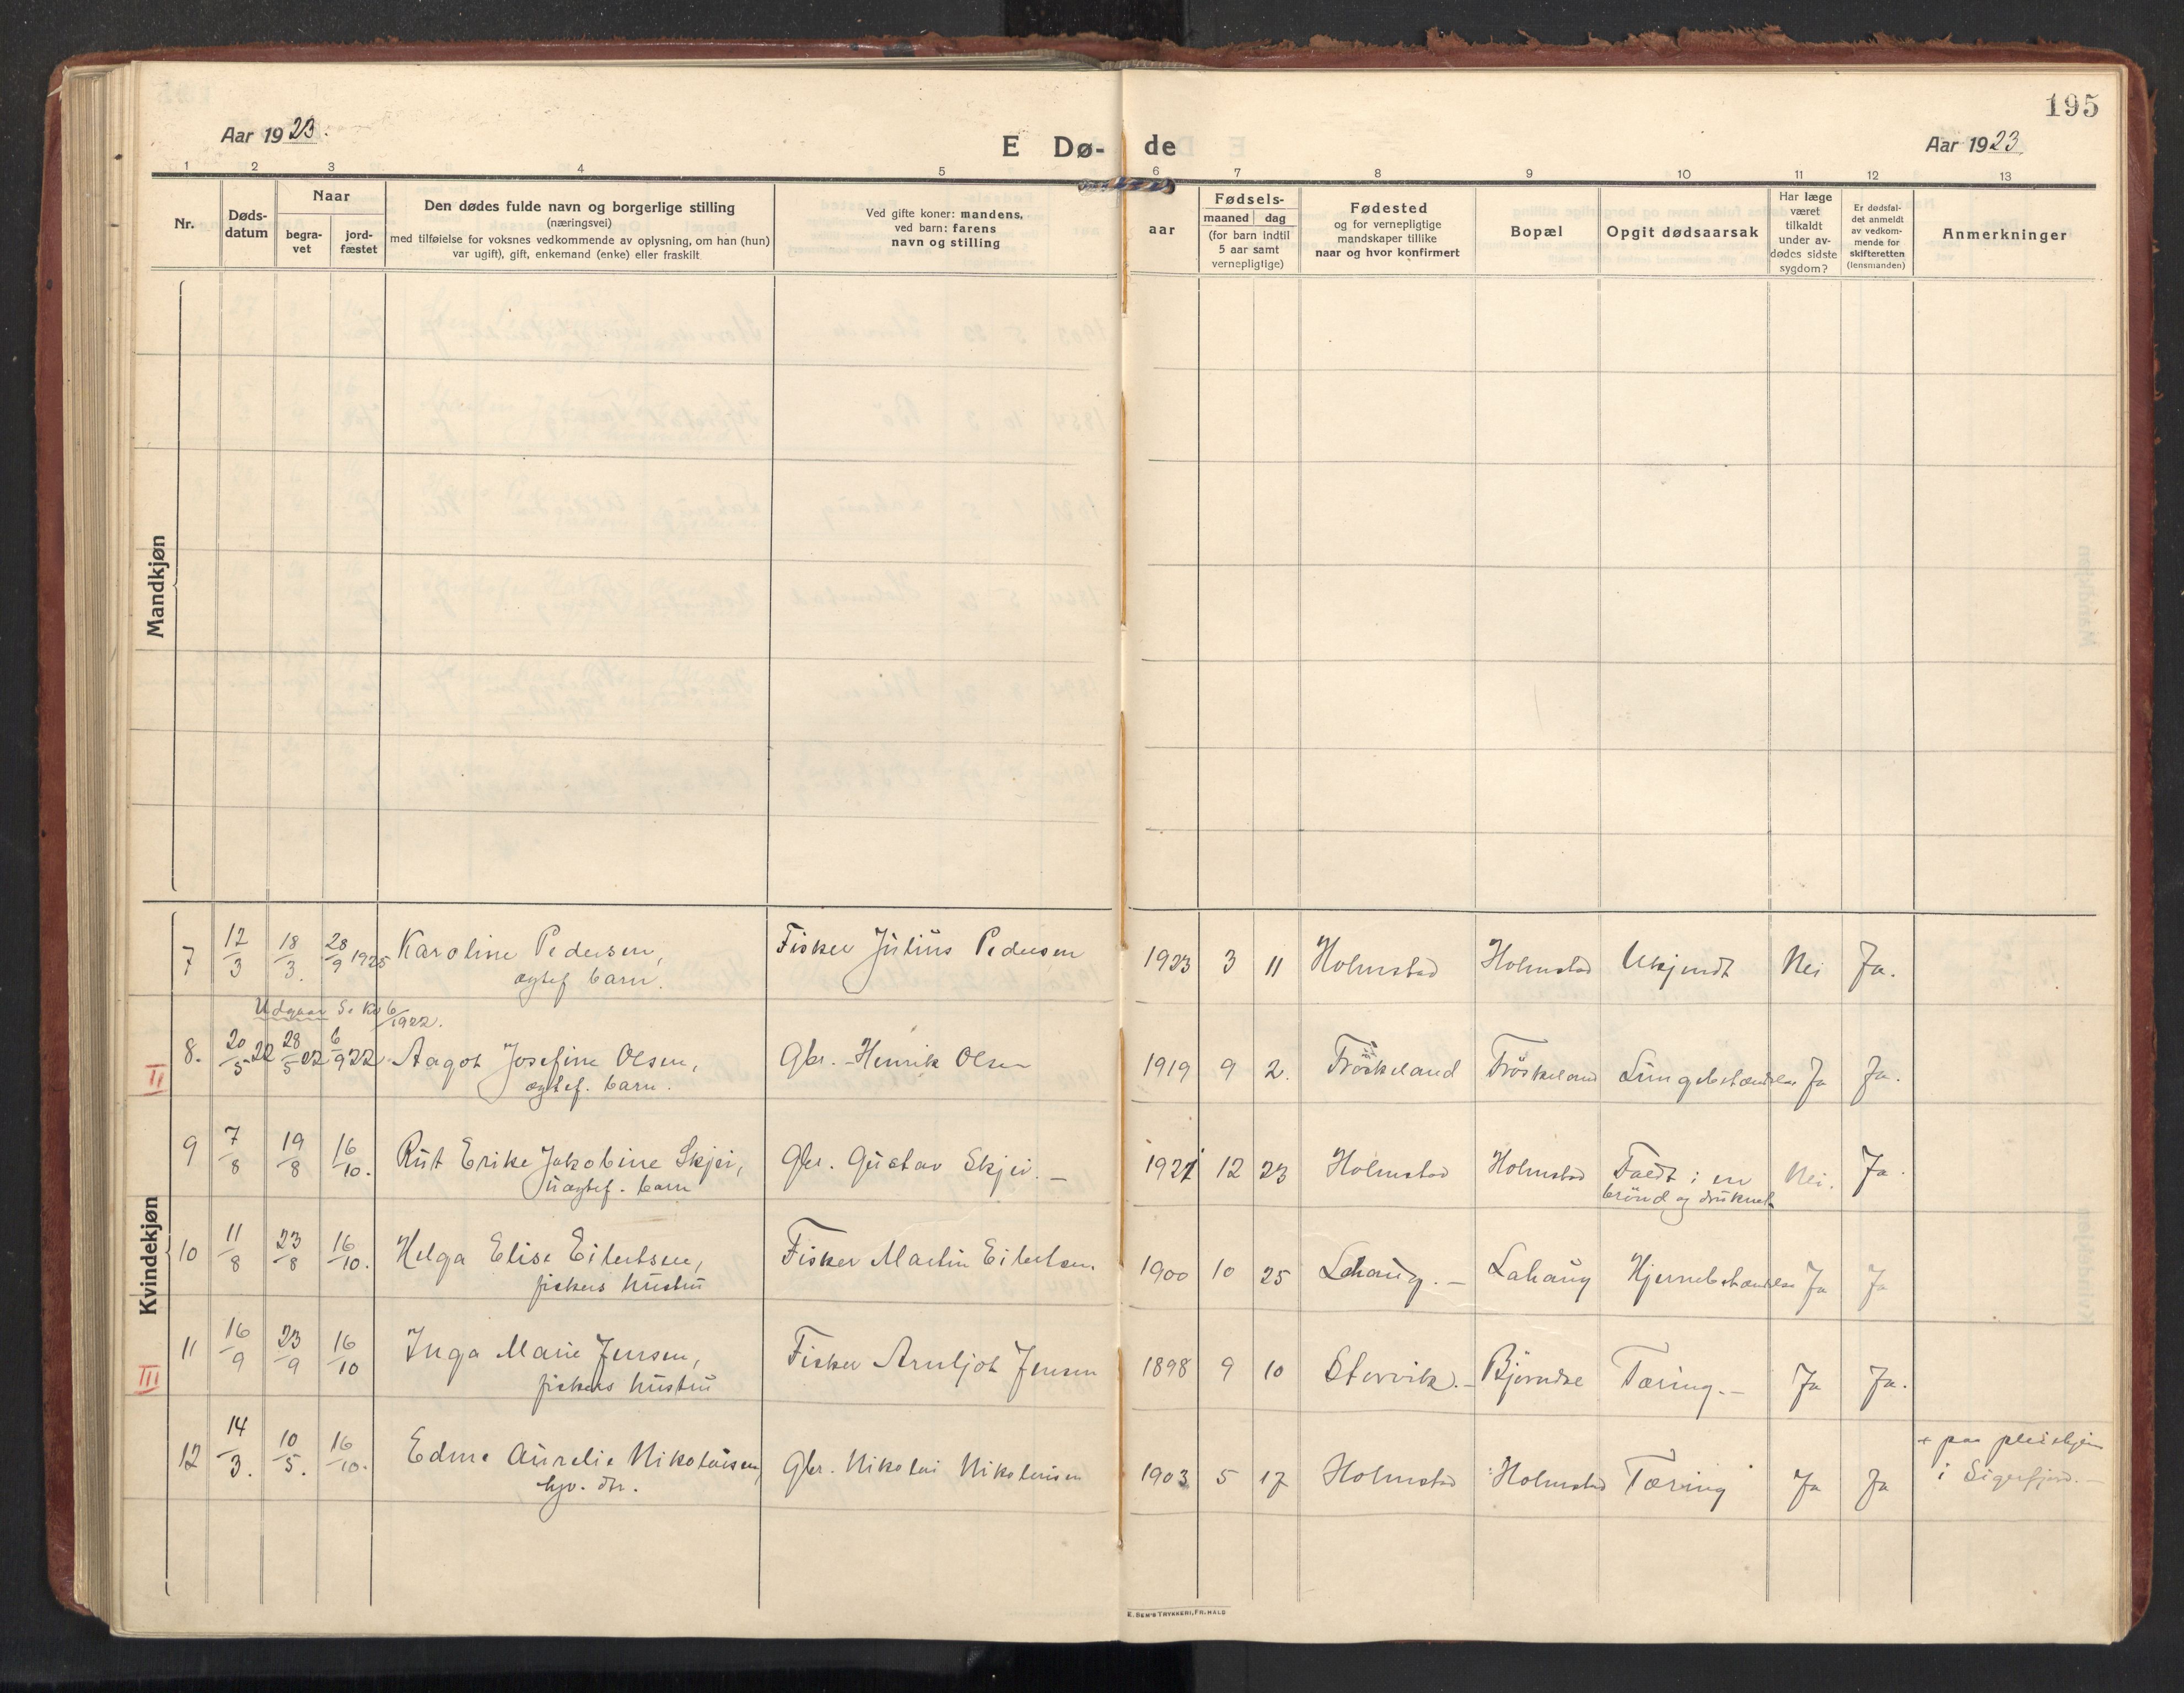 195
Aar 1923.
E Dø- de
Aar 1923
1 2 3 4 5 6 7 8 9 10 11 12 13
Nr.
Døds-
datum
Naar
begra-
vet
jord-
fæstet
Den dødes fulde navn og borgerlige stilling
(næringsvei)
med tilføielse for voksnes vedkommende av oplysning, om han (hun)
var ugift), gift, enkemand (enke) eller fraskilt
Ved gifte koner: mandens,
ved barn: farens
navn og stilling
aar
Fødsels-
maaned dag
(for barn indtil
5 aar samt
vernepligtige)
Fødested
og for vernepligtige
mandskaper tillike
naar og hvor konfirmert
Bopæl
Opgit dødsaarsak
Har læge
været
tilkaldt
under av-
dødes sidste
sygdom?
Er dødsfal-
det anmeldt
av vedkom-
mende for
skifteretten
(lensmanden)
Anmerkninger
Mandkjøn
Kvindekjøn
7 12/3 18/3. 28/9 1925 Karoline Pedersen, Fisker Julius Pedersen 1923 3 11 Holmstad Holmstad Ukjendt Nei Ja.
egtef barn.
Udgaar Se Kv 6/1922.
II 8. 20/5 22 28/5 22 6/9 22. Aagot Josefine Olsen, Gbr. Henrik Olsen 1919 9 2. Fröskeland Fröskeland Lungebetændelse Ja Ja.
egtef. barn.
9 7/8 19/8 16/10. Rut Erike Jakobine Skjei, Gbr. Gustav Skjei. 1921 12 23 Holmstad Holmstad Faldt i en Nei. Ja.
uegtef. barn brönd og druknet
10 11/8 23/8 16/10. Helga Elise Eilertsen, Fisker Martin Eilertsen 1900 10 25 Lahaug. Lahaug Hjernebetændelse Ja Ja
fiskers hustru
III 11 16/9 23/9 16/10 Inga Marie Jensen, Fisker Arnljot Jensen 1898 9 10 Storvik. Björndse Tæring. Ja Ja.
fiskers hustru
12 14/3. 10/5. 16/10. Edine Aurelie Nikolaisen, Gbr. Nikolai Nikolaisen 1903 5 17 Holmstad Holmstad Tæring Ja Ja + paa pleiehjem
hjv. dtr. i Sigerfjord.
E. SEM'S TRYKKERI, FR.HALD